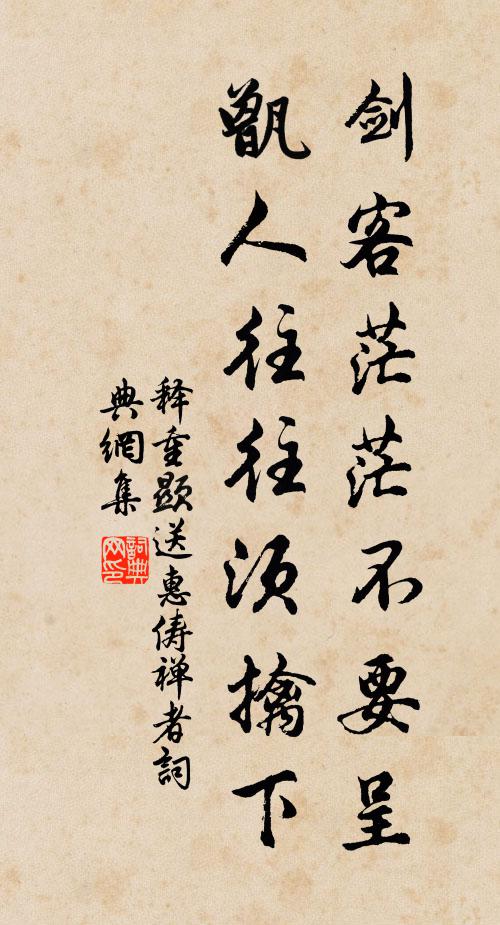 剑客茫茫不要呈
甑人往往须擒下
释重顯送惠俦禅者詞
典網集
詞典
网印